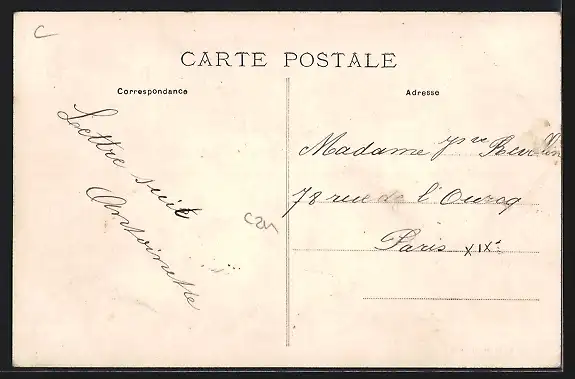 CARTE POSTALE
Correspondance
Lettre suit
Antoinette
Adresse
Madame
78 rue de l'Ourcq
Paris XIXe